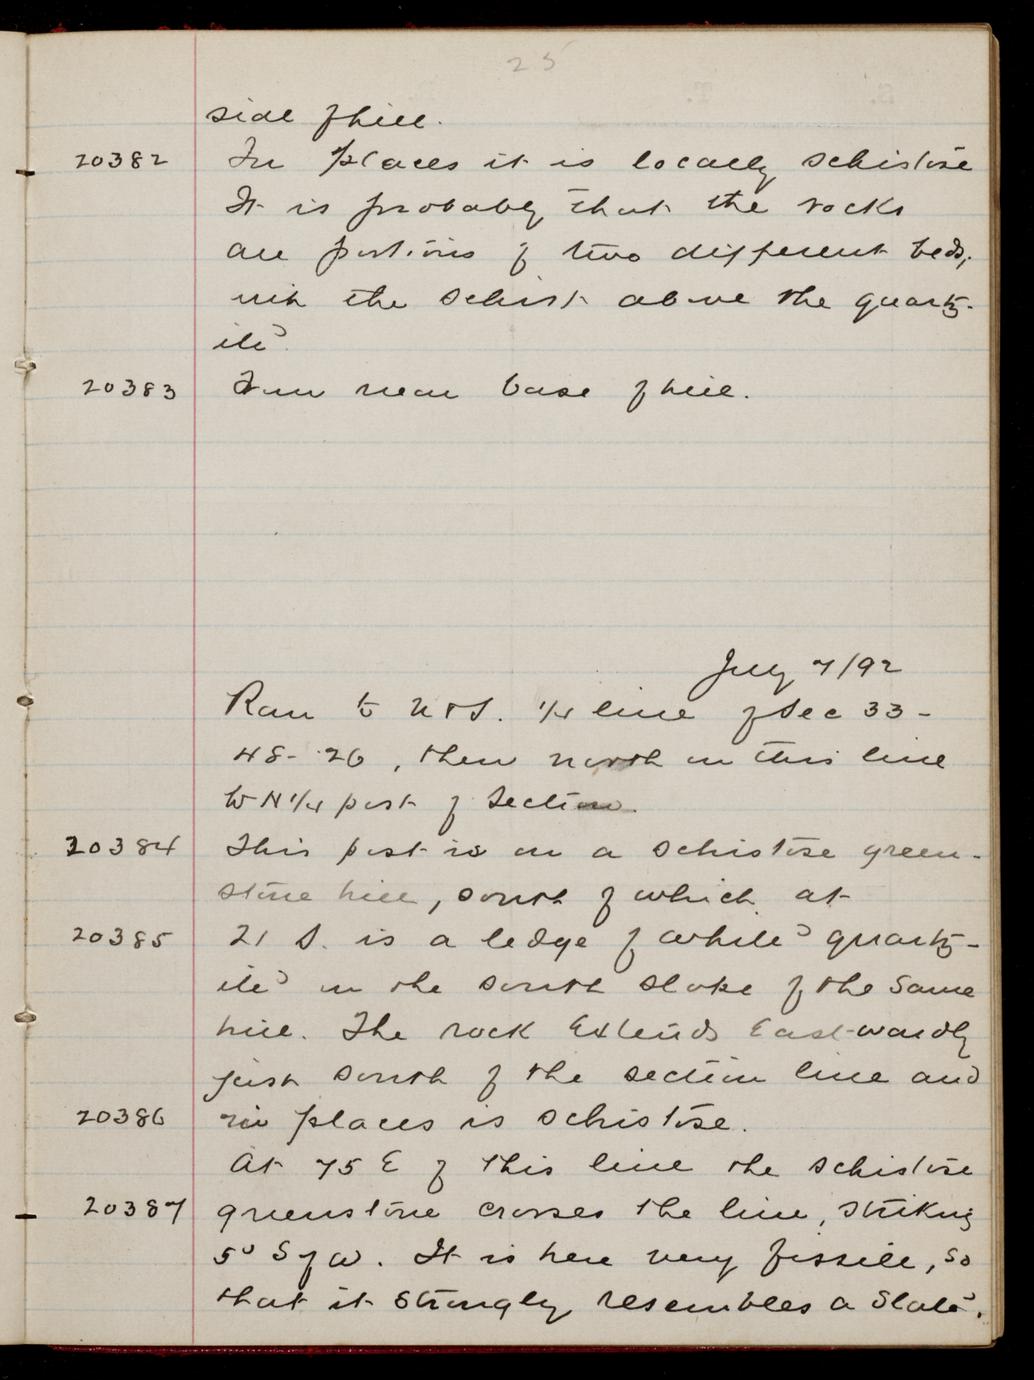 25
side of hill.
20382 In places it is locally schistose
It is probably that the rocks
are portions of two different beds,
with the schist above the quartz-
ite.
20383 From near base of hill.
July 7/92
Ran to N & S. 1/4 line of Sec 33-
48-26, then north on this line
to N 1/4 post of Section.
20384 This post is on a schistose green-
stone hill, south of which at
20385 21 S. is a ledge of white quartz-
ite on the south slope of the same
hill. The rock extends Eastwardly
just south of the section line and
20386 in places is schistose.
At 75 E of this line the schistose
20387 greenstone crosses the line, striking
5° S of W. It is here very fissile, so
that it strongly resembles a slate.